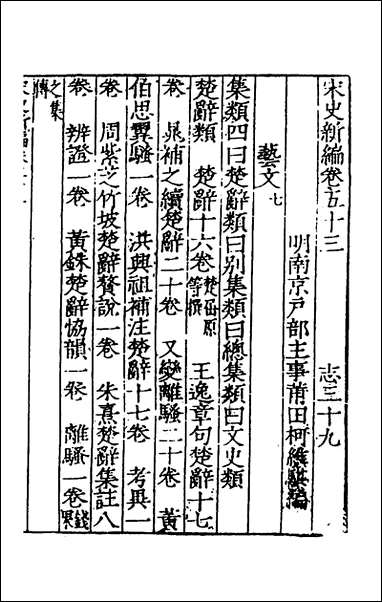 宋史新編卷五十三 志三十九
明南京戶部主事莆田柯維騏編
藝文七
集類四曰楚辭類曰別集類曰總集類曰文史類
楚辭類 楚辭十六卷 楚屈原等撰 王逸章句楚辭十七
卷 晁補之續楚辭二十卷 又變離騷二十卷 黃
伯思翼騷一卷 洪興祖補注楚辭十七卷 考異一
卷 周紫芝竹坡楚辭贅說一卷 朱熹楚辭集註八
卷 辨證一卷 黃銖楚辭協韻一卷 離騷一卷 錢杲
之集傳